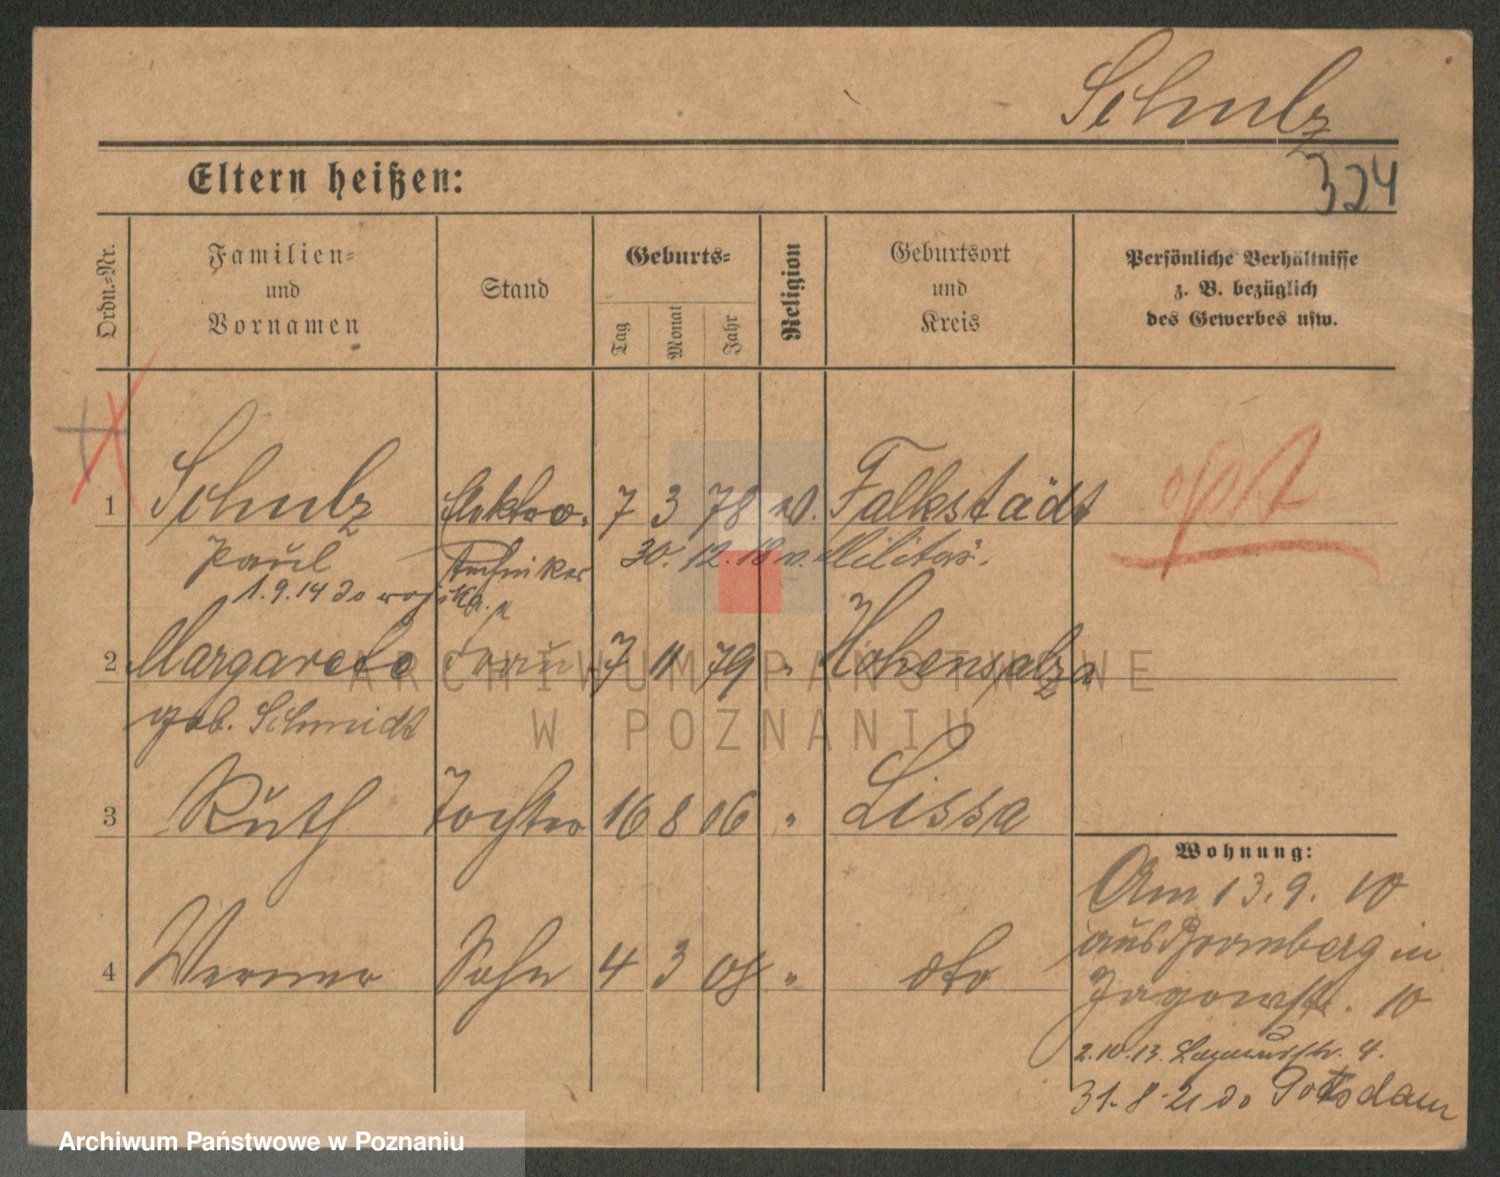 Schulz
324
Eltern heißen:
Ordn.-Nr.
Familien-
und
Vornamen
Stand
Geburts-
Tag
Monat
Jahr
Religion
Geburtsort
und
Kreis
Persönliche Verhältnisse
z. B. bezüglich
des Gewerbes usw.
1 Schulz Elektro- 7 3 78 Falkstädt
opt
Paul Techniker 30. 12. 18 v. Militär.
1.9.14 do wojska.
2 Margarete Frau 7 11 79 " Hohensalza
geb. Schmidt
3 Ruth Tochter 16 8 06 " Lissa
Wohnung:
Am 13.9. 10
aus Bromberg in
4 Werner Sohn 4 3 08 " dto
Jagowstr. 10
2.10.13. 4.
31.8.21 do Potsdam
ARCHIWUM PAŃSTWOWE
W POZNANIU
Archiwum Państwowe w Poznaniu